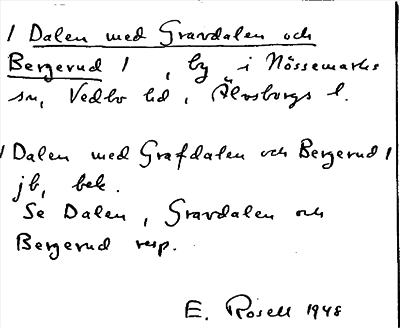 / Dalen med Gravdalen och
Bergerud / , by i Nössemarks
sn, Vedbo hd, Älvsborgs l.
/ Dalen med Grafdalen och Bergerud /
jb, bek.
Se Dalen, Gravdalen och
Bergerud resp.
E. Rosell 1948